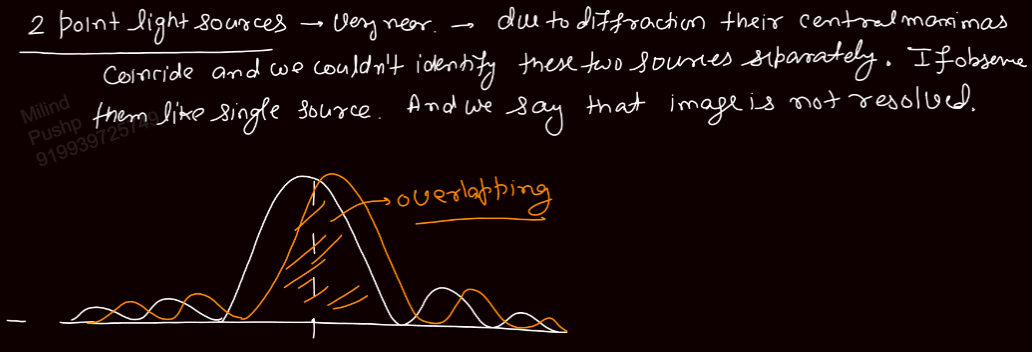 2 point light sources → very near. → due to diffraction their central maximas
Coincide and we couldn't identify these two sources separately. If observe
them like single source. And we say that image is not resolved.
Milind
Pushp
919939725749
overlapping